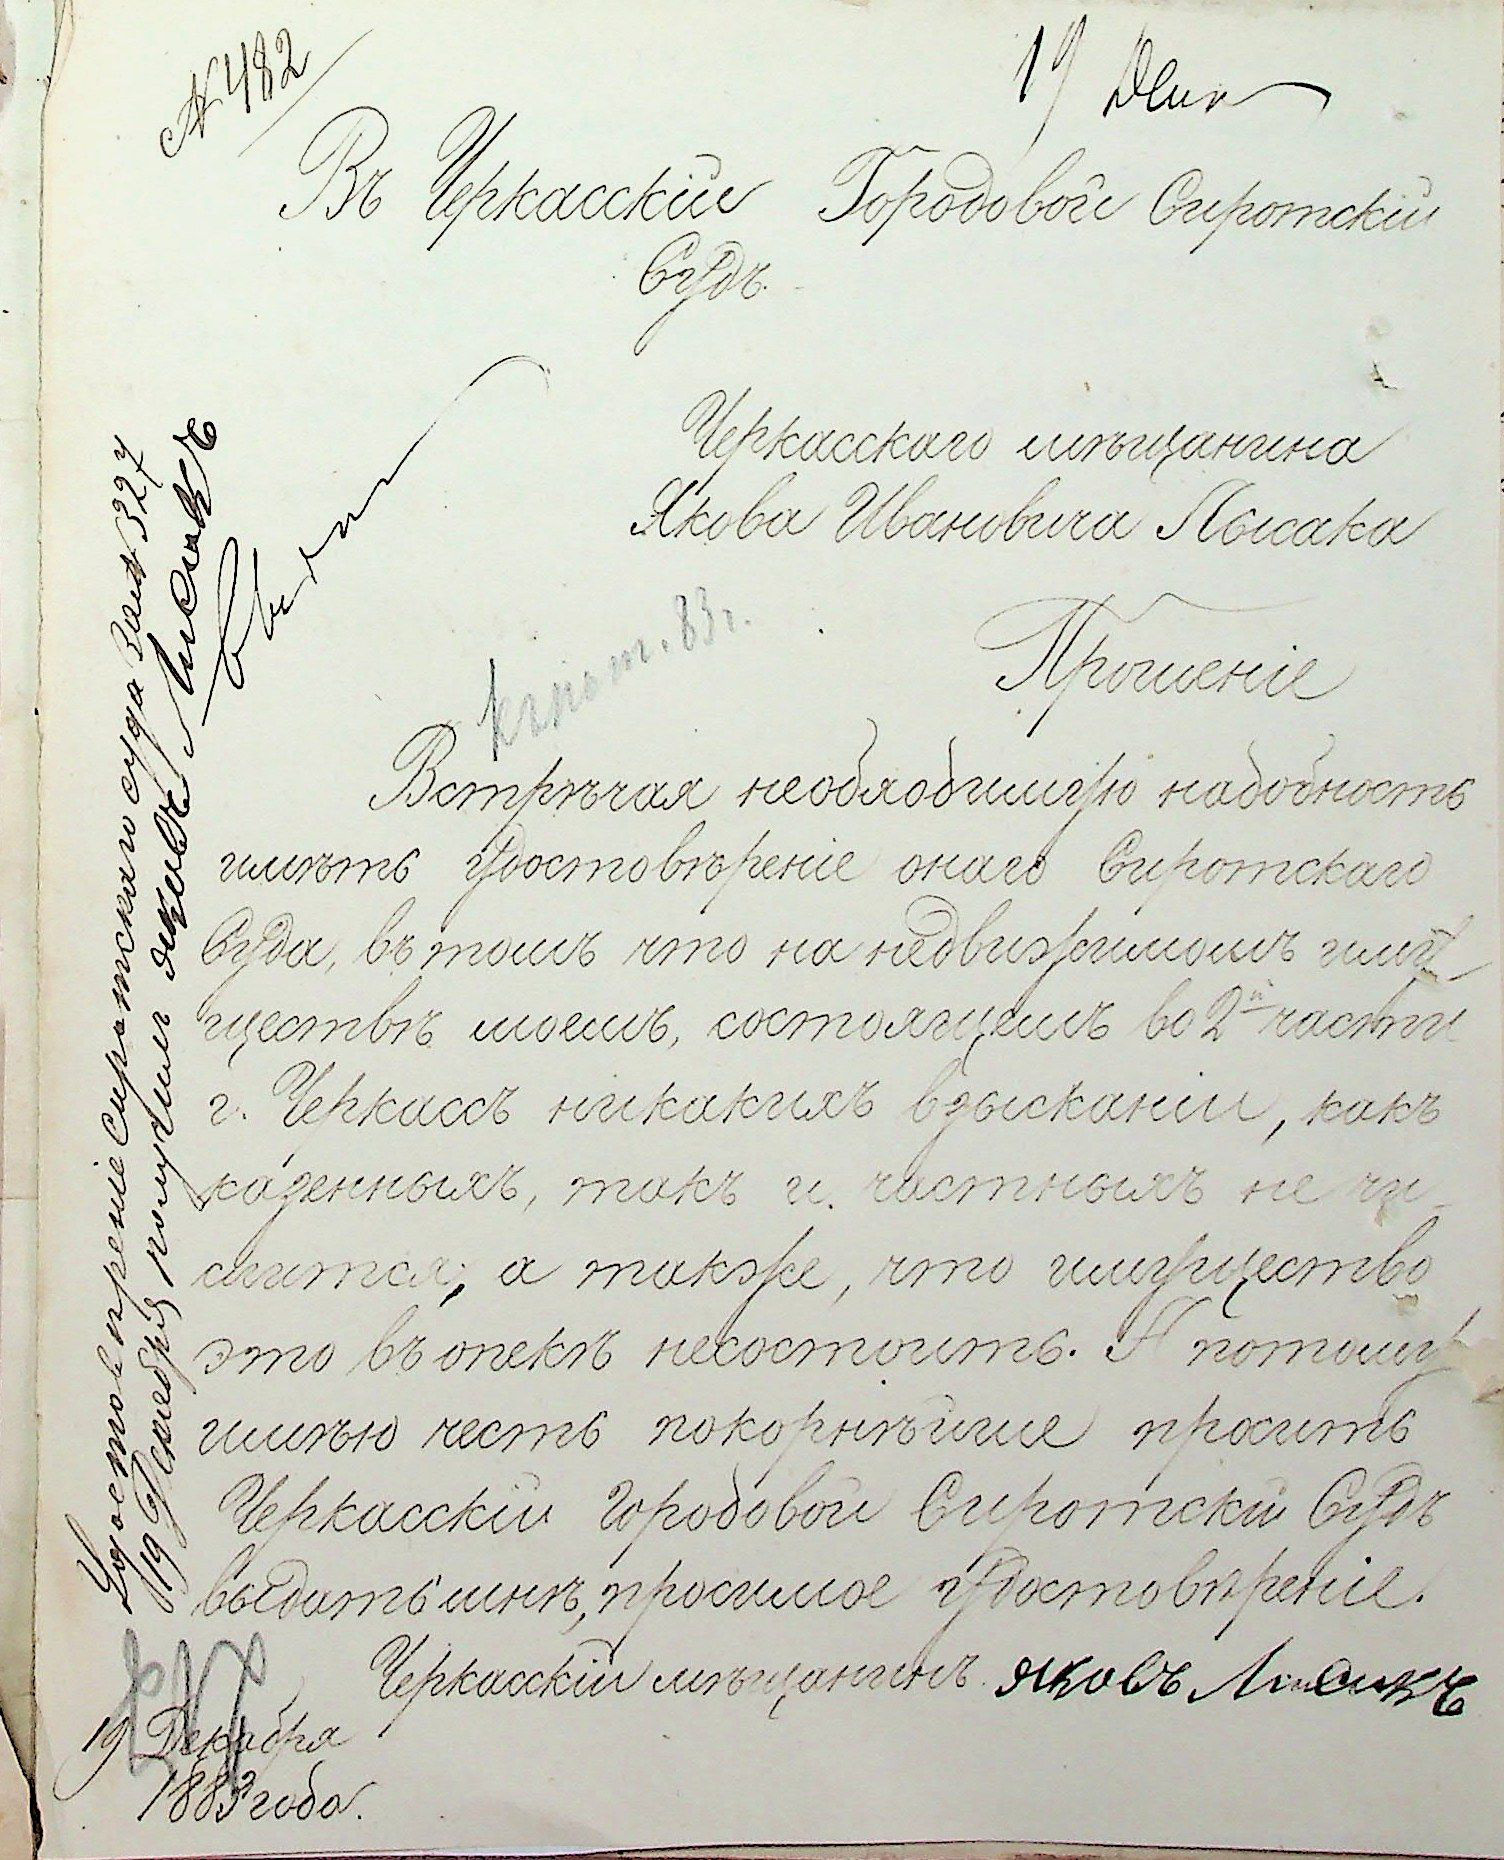 № 482
19 Дек
Въ Черкасскій Городовой Сиротскій
Судъ.
Черкасскаго мѣщанина
Якова Ивановича Лысака
Прошеніе
Встрѣчая необходимую надобность
имѣть удостовѣреніе онаго Сиротскаго
Суда, въ томъ что на недвижимомъ иму-
ществѣ моемъ, состоящемъ во 2й части
г. Черкассъ никакихъ взысканій, какъ
казенныхъ, такъ и частныхъ не чи-
слится, а также, что имущество
это въ опекѣ несостоитъ. А потому
имѣю честь покорнѣйше просить
Черкасскій Городовой Сиротскій Судъ
выдать мнѣ, просимое удостовѣреніе.
Черкасскій мѣщанинъ Яковъ Лисакъ
19 Декабря
1883 года.
Удостовѣреніе Сиротскаго суда за № 327
19 Декабря получилъ Яковъ Лисакъ